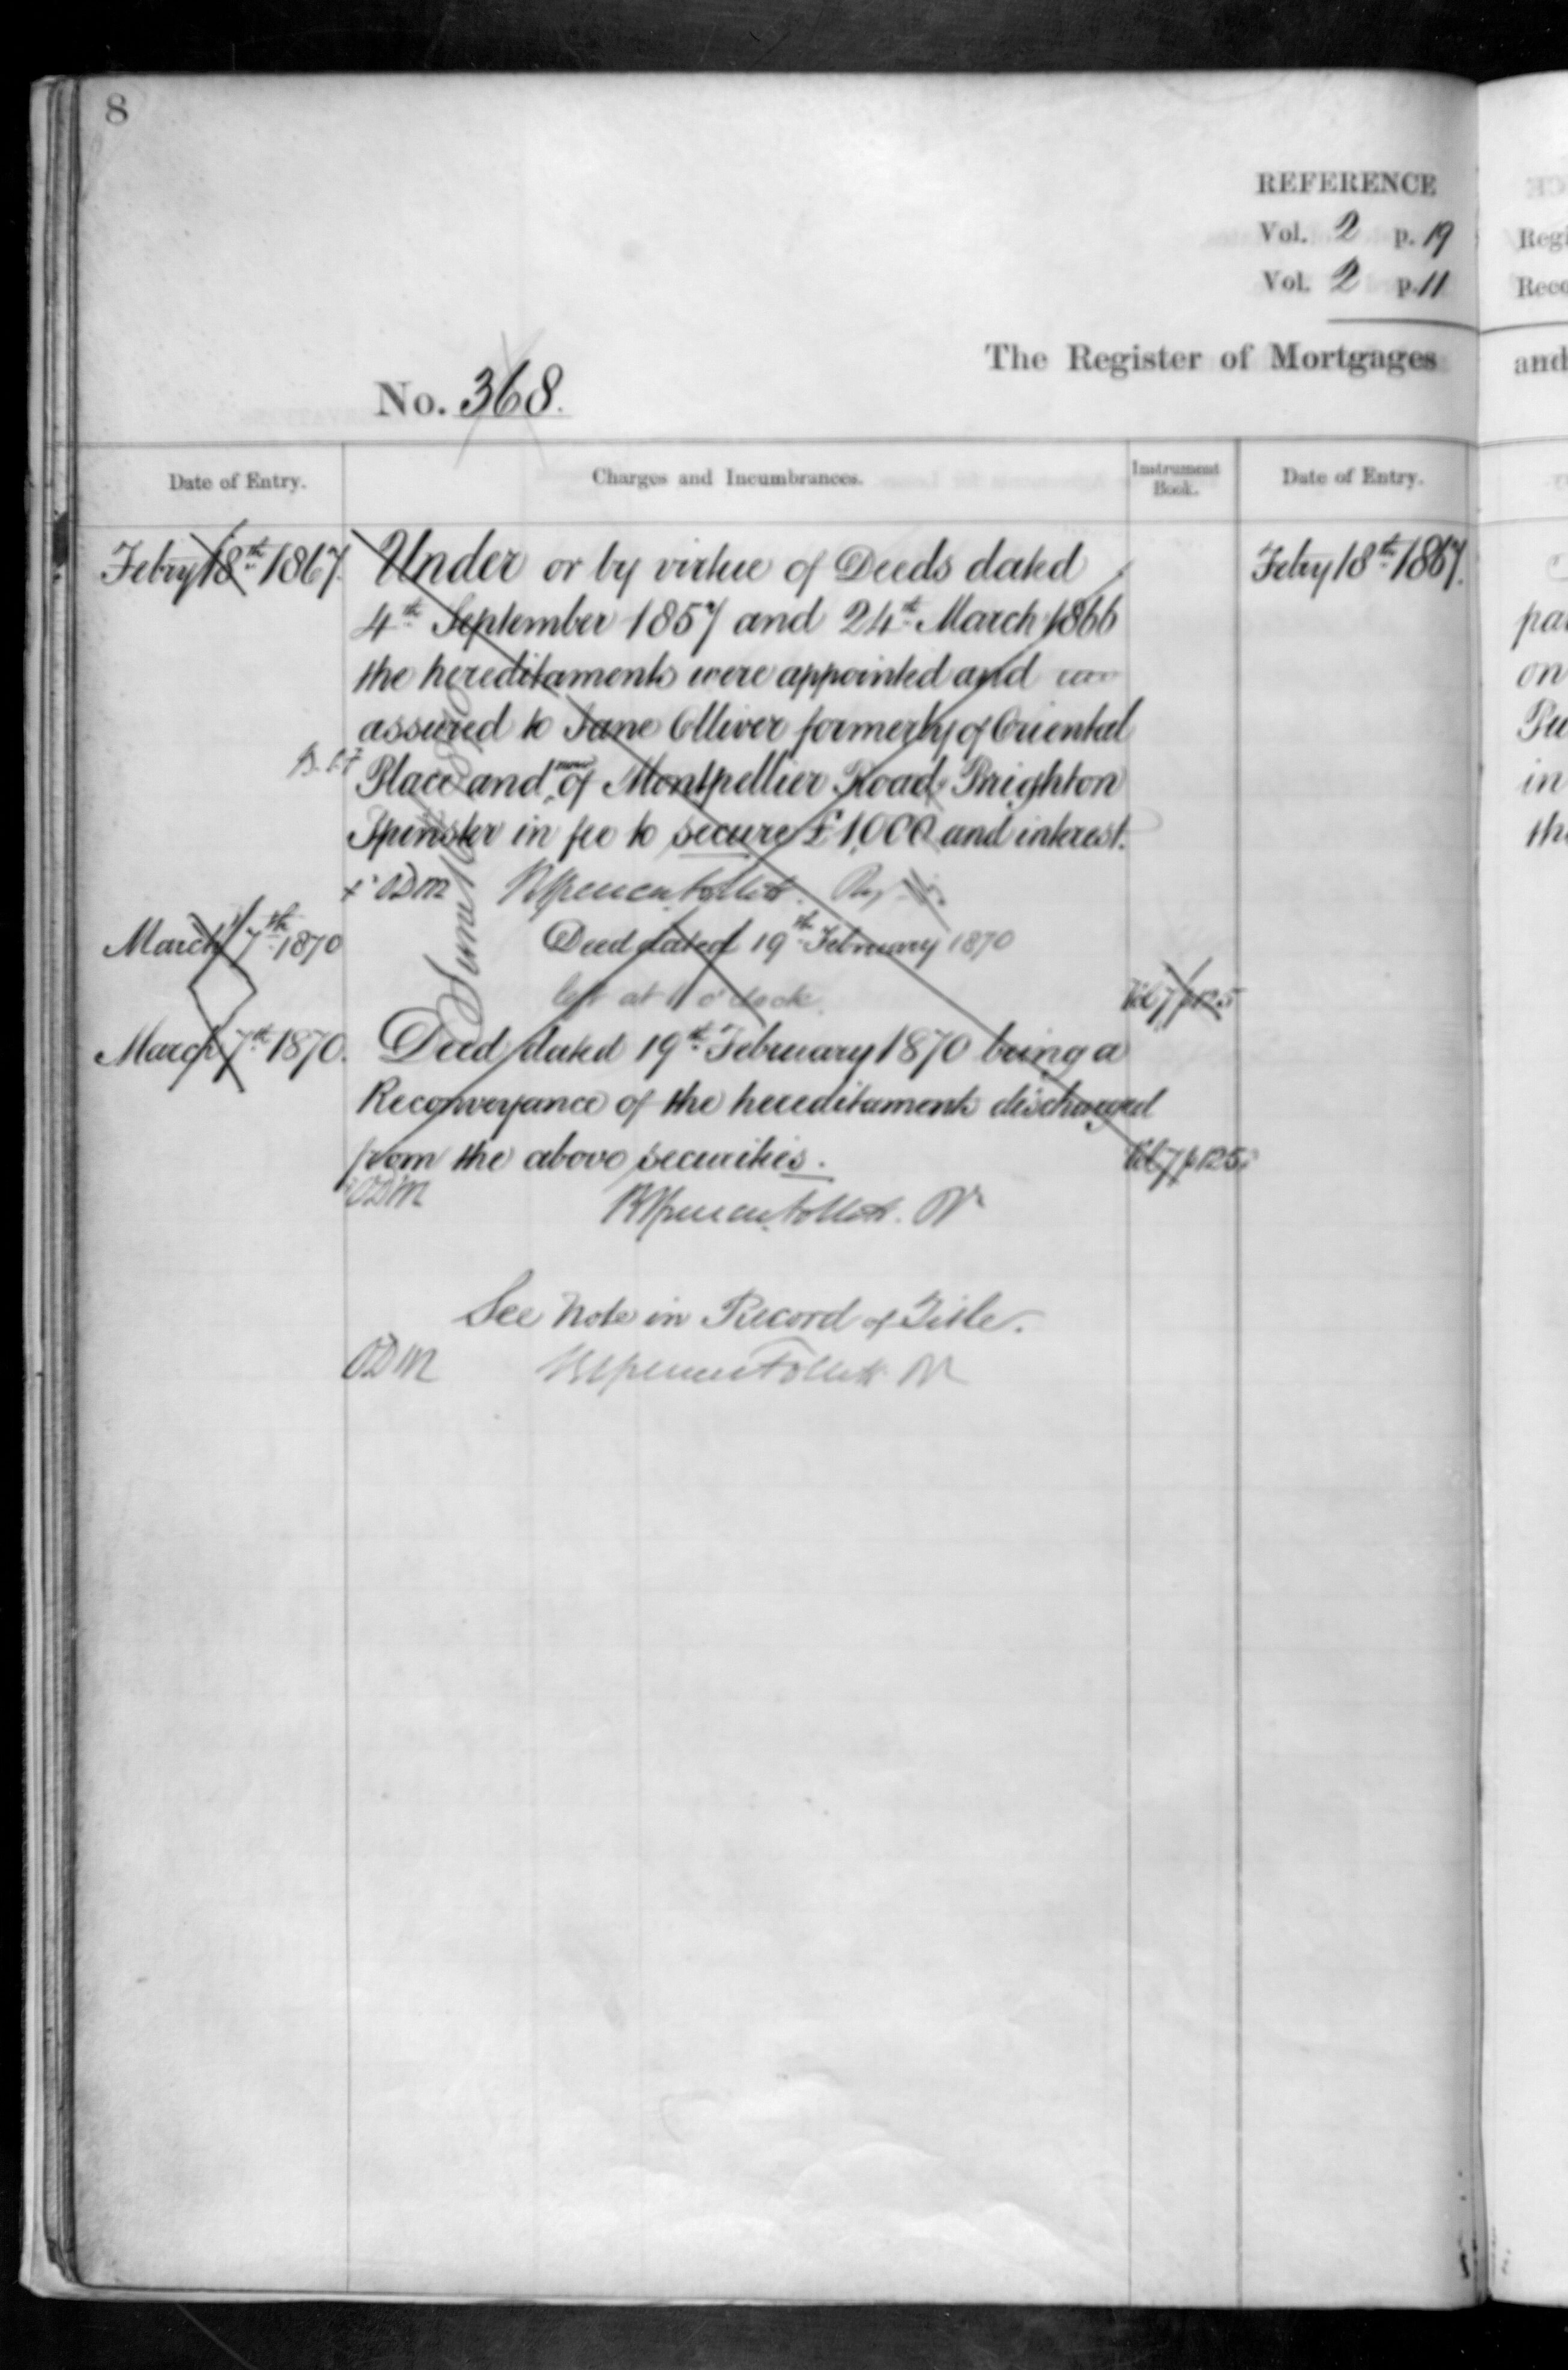 8
REFERENCE
Vol. 2 p. 19
Vol. 2 p. 11
The Register of Mortgages
No. 368.
Date of Entry. Charges and Incumbrances. Instrument Book. Date of Entry.
Febry 18th 1867. Under or by virtue of Deeds dated Febry 18th 1867.
4th September 1857 and 24th March 1866
the hereditaments were appointed and
assured to Jane Olliver formerly of Oriental
Place and now of Montpellier Road Brighton
Spinster in fee to secure £1,000 and interest.
ODM R Spencer Follett.
March 7th 1870 Deed dated 19th February 1870
left at 1 o'clock Vol 7 p 125
March 7th 1870. Deed dated 19th February 1870 being a
Reconveyance of the hereditaments discharged
from the above securities. Vol 7 p 125
ODM R Spencer Follett. Rr
See Note in Record of Title.
ODM R Spencer Follett Rr
Regi
Reco
and
par
on
in
the